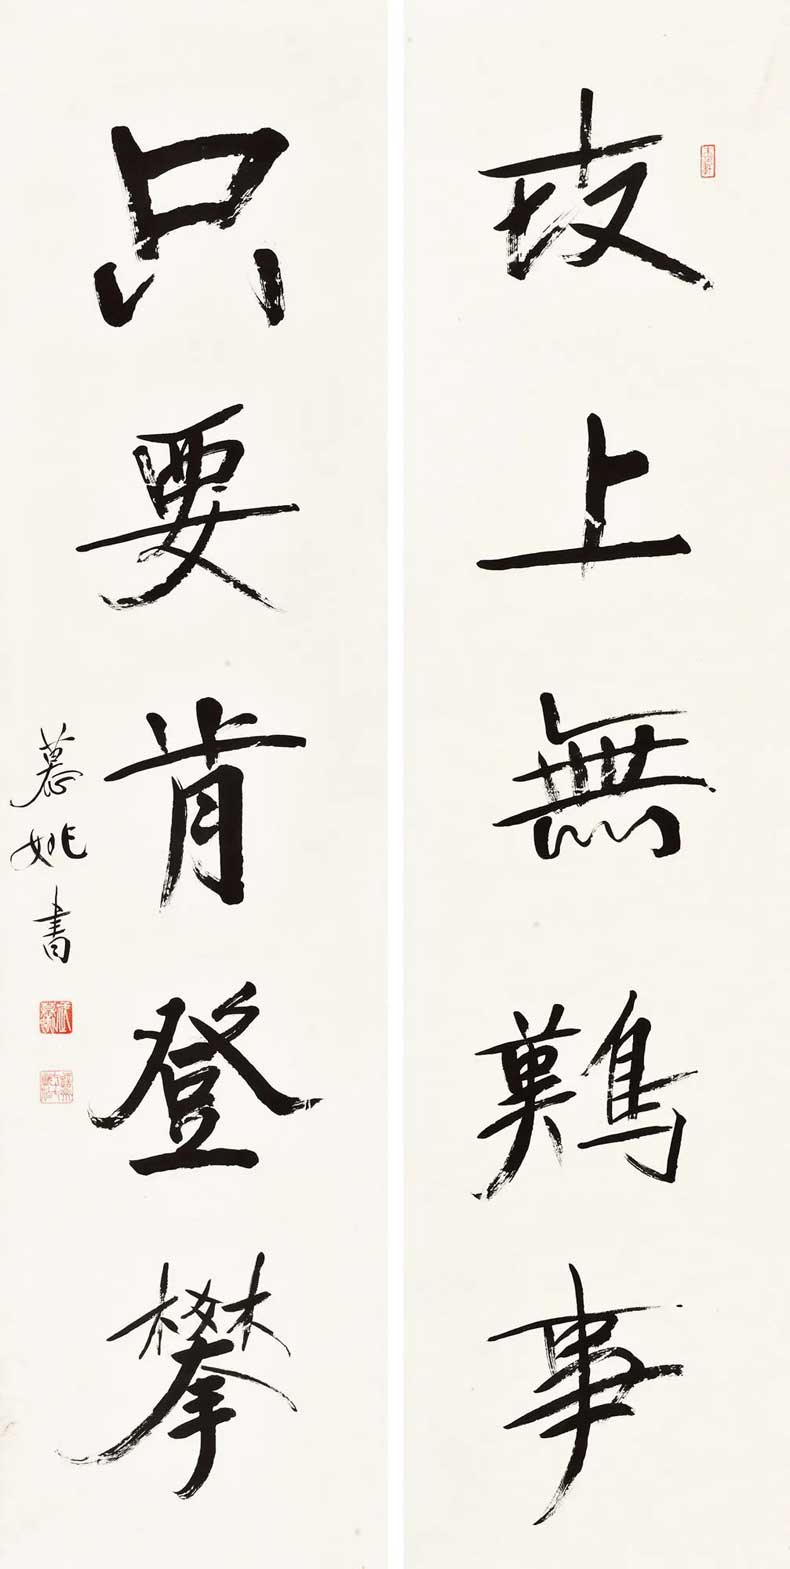 世上無難事
只要肯登攀
慕姚書